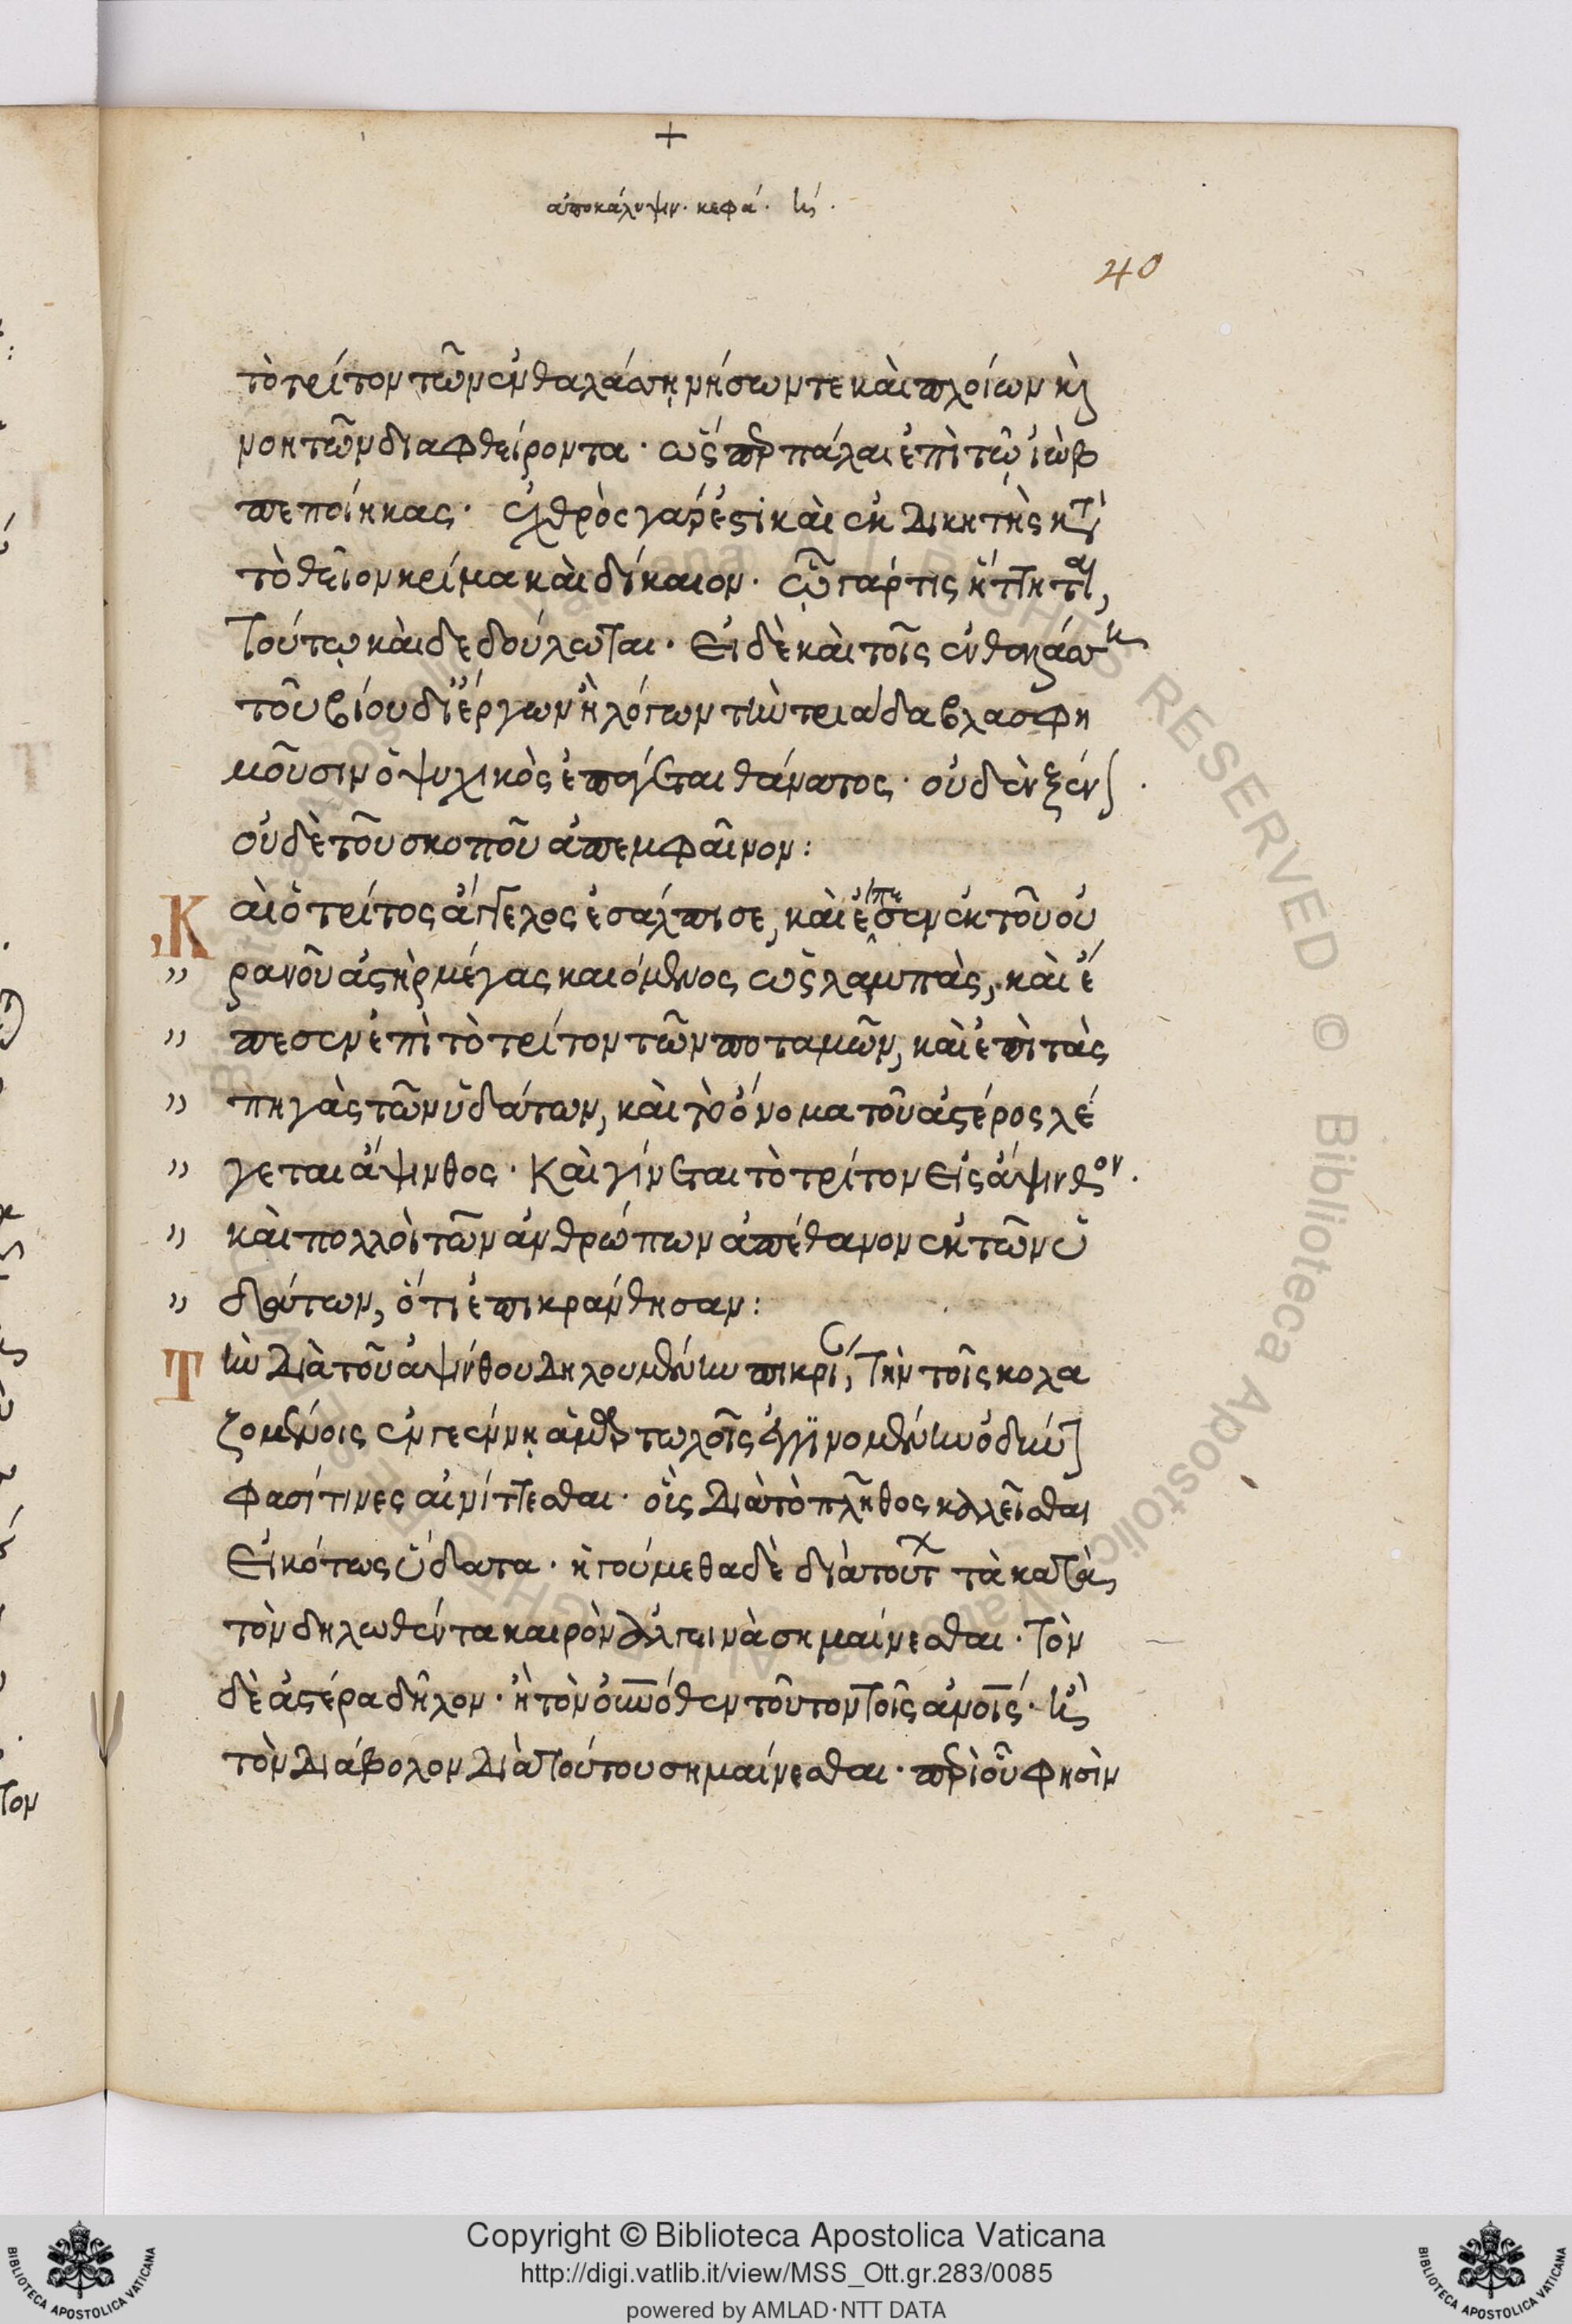 +
ἀποκάλυψιν. κεφά. ις.
40
τὸ τρίτον τῶν ἐν θαλάσσῃ νήσων τε καὶ πλοίων κ
νοητῶν διαφθείροντα. ὥσπερ πάλαι ἐπὶ τῷ ἰὼβ
πεποίηκας. ἐχθρὸς γάρ ἐστι καὶ ἐκδικητὴς κτ
τὸ θεῖον κρίμα καὶ δίκαιον. ᾧ γάρ τις ἥττηται,
τούτῳ καὶ δεδούλωται. Εἰ δὲ καὶ τοῖς ἐν θαλάσσῃ
τοῦ βίου δι' ἔργων ἢ λόγων τὴν τριάδα βλασφη
μοῦσιν ὁ ψυχικὸς ἐπάγεται θάνατος. οὐδὲν ξέν.
οὐδὲ τοῦ σκοποῦ ἀπεμφαῖνον:
Καὶ ὁ τρίτος ἄγγελος ἐσάλπισε, καὶ ἔπεσεν ἐκ τοῦ οὐ
" ρανοῦ ἀστὴρ μέγας καιόμενος ὡς λαμπὰς, καὶ ἔ
" πεσεν ἐπὶ τὸ τρίτον τῶν ποταμῶν, καὶ ἐπὶ τὰς
" πηγὰς τῶν ὑδάτων, καὶ τὸ ὄνομα τοῦ ἀστέρος λέ
" γεται ἄψινθος. Καὶ γίνεται τὸ τρίτον εἰς ἄψινθον.
" καὶ πολλοὶ τῶν ἀνθρώπων ἀπέθανον ἐκ τῶν ὑ
" δάτων, ὅτι ἐπικράνθησαν:
Τὴν διὰ τοῦ ἀψίνθου δηλουμένην πικρί, τὴν τοῖς κολα
ζομένοις ἐν γεέννῃ ἁμαρτωλοῖς ἐγγινομένην ὀδύν
φασί τινες αἰνίττεσθαι. οἷς διὰ τὸ πλῆθος καλεῖσθαι
εἰκότως ὕδατα. ἡγούμεθα δὲ διὰ τούτ τὰ κατὰ
τὸν δηλωθέντα καιρὸν ἀλγεινὰ σημαίνεσθαι. τὸν
δὲ ἀστέρα δῆλον. ἢ τὸν οὐνόθεν τοῦτον τοῖς ἀνοις. ἢ
τὸν διάβολον διὰ τούτου σημαίνεσθαι. περὶ οὗ φησὶν
Copyright © Biblioteca Apostolica Vaticana
http://digi.vatlib.it/view/MSS_Ott.gr.283/0085
powered by AMLAD·NTT DATA